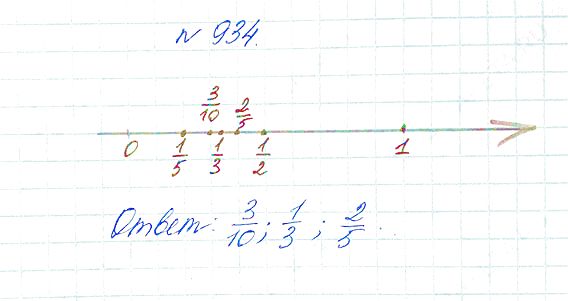 № 934.
3/10 2/5
0 1/5 1/3 1/2 1
Ответ: 3/10; 1/3; 2/5.